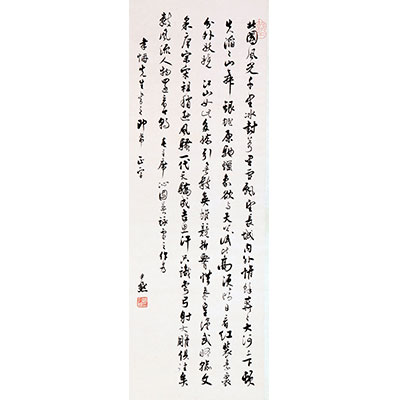 北國風光千里冰封萬里雪飄望長城内外惟餘莽〻大河上下頓
失滔〻山舞銀蛇原馳蠟象欲與天公試比高須晴日看紅裝素裹
分外妖嬈 江山如此多嬌引無數英雄競折腰惜秦皇漢武略輸文
采唐宗宋祖稍遜風騷一代天驕成吉思汗只識彎弓射大雕俱往矣
數風流人物還看今朝 毛主席沁園春詠雪之作書
先生 即希 正字
尹默